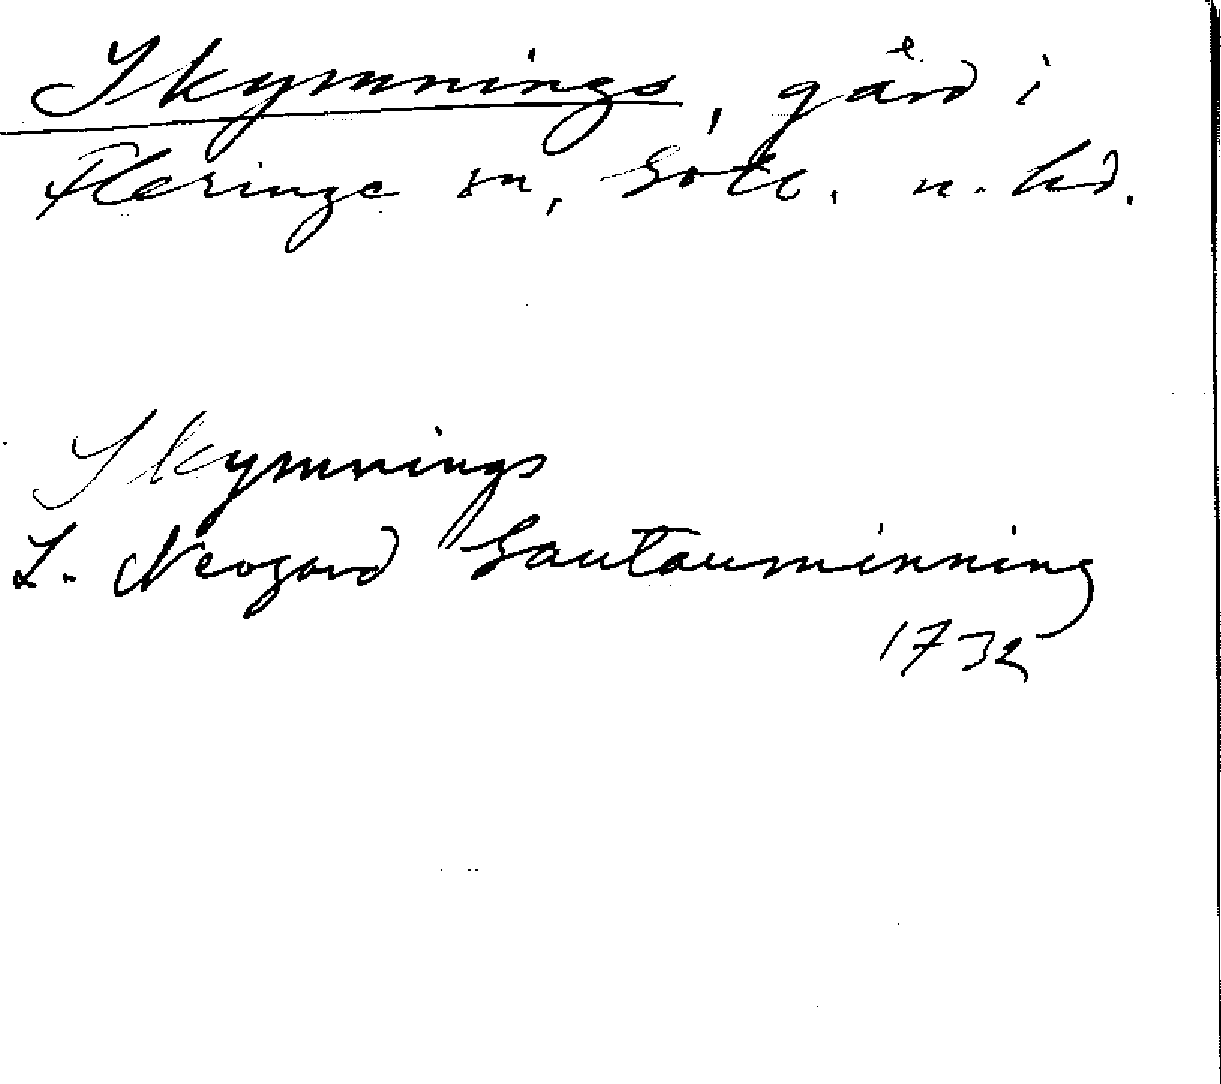 Skymnings, gård i
Fleringe sn, Gotl. n. hd.
Skymnings
L. Neogard Gautauminning
1732